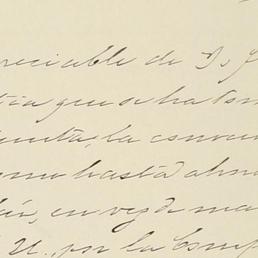 reciable de D. J
tia que se ha tom
uenta, la convoca
omo hasta ahora
ais, en vez de ma
U., por la Comp